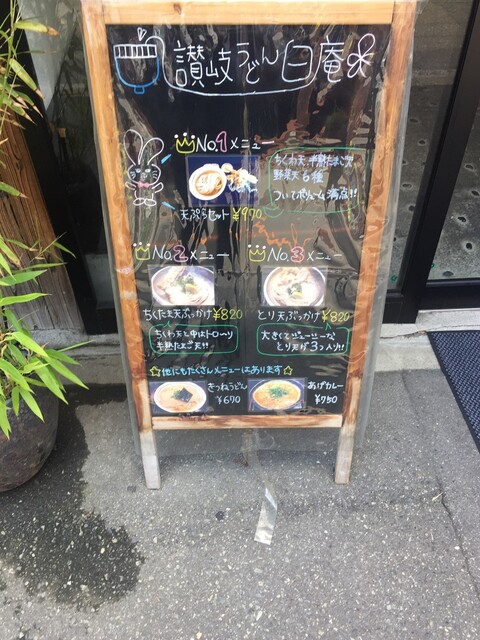 讃岐うどん白庵
No.1メニュー
ちくわ天、半熟たまご天
野菜天6種
ついてボリューム満点!!
天ぷらセット ¥970
No.2メニュー
ちくたま天ぶっかけ¥820
ちくわ天と中はトローリ
半熟たまご天!!
No.3メニュー
とり天ぶっかけ¥820
大きくてジューシーな
とり天が3つ入り!!
☆他にもたくさんメニューはあります☆
きつねうどん
¥670
あげカレー
¥750